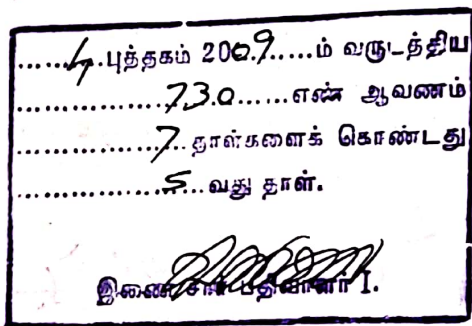 .......4.புத்தகம் 2009.....ம் வருடத்திய
................730......எண் ஆவணம்
.................7. தாள்களைக் கொண்டது
...................5...வது தாள்.
இணை சார் பதிவாளர் I.